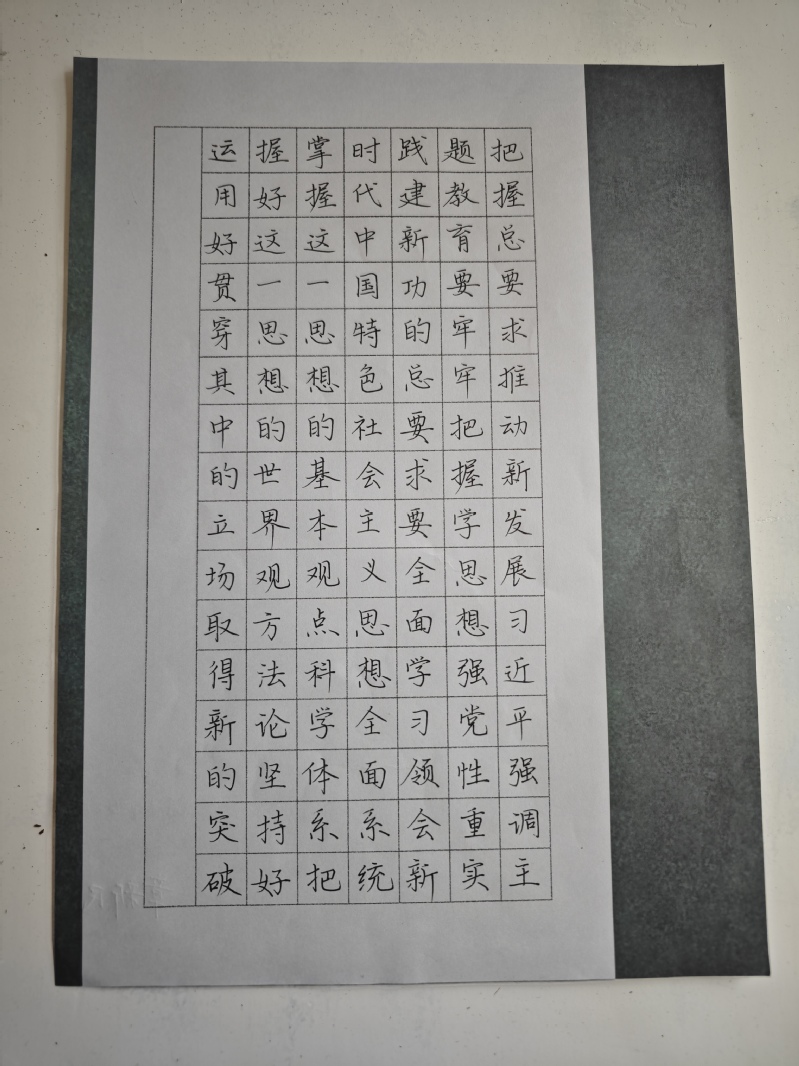 把握总要求推动新发展习近平强调主
题教育要牢牢把握学思想强党性重实
践建新功的总要求要全面学习领会新
时代中国特色社会主义思想全面系统
掌握这一思想的基本观点科学体系把
握好这一思想的世界观方法论坚持好
运用好贯穿其中的立场观取得新的突破